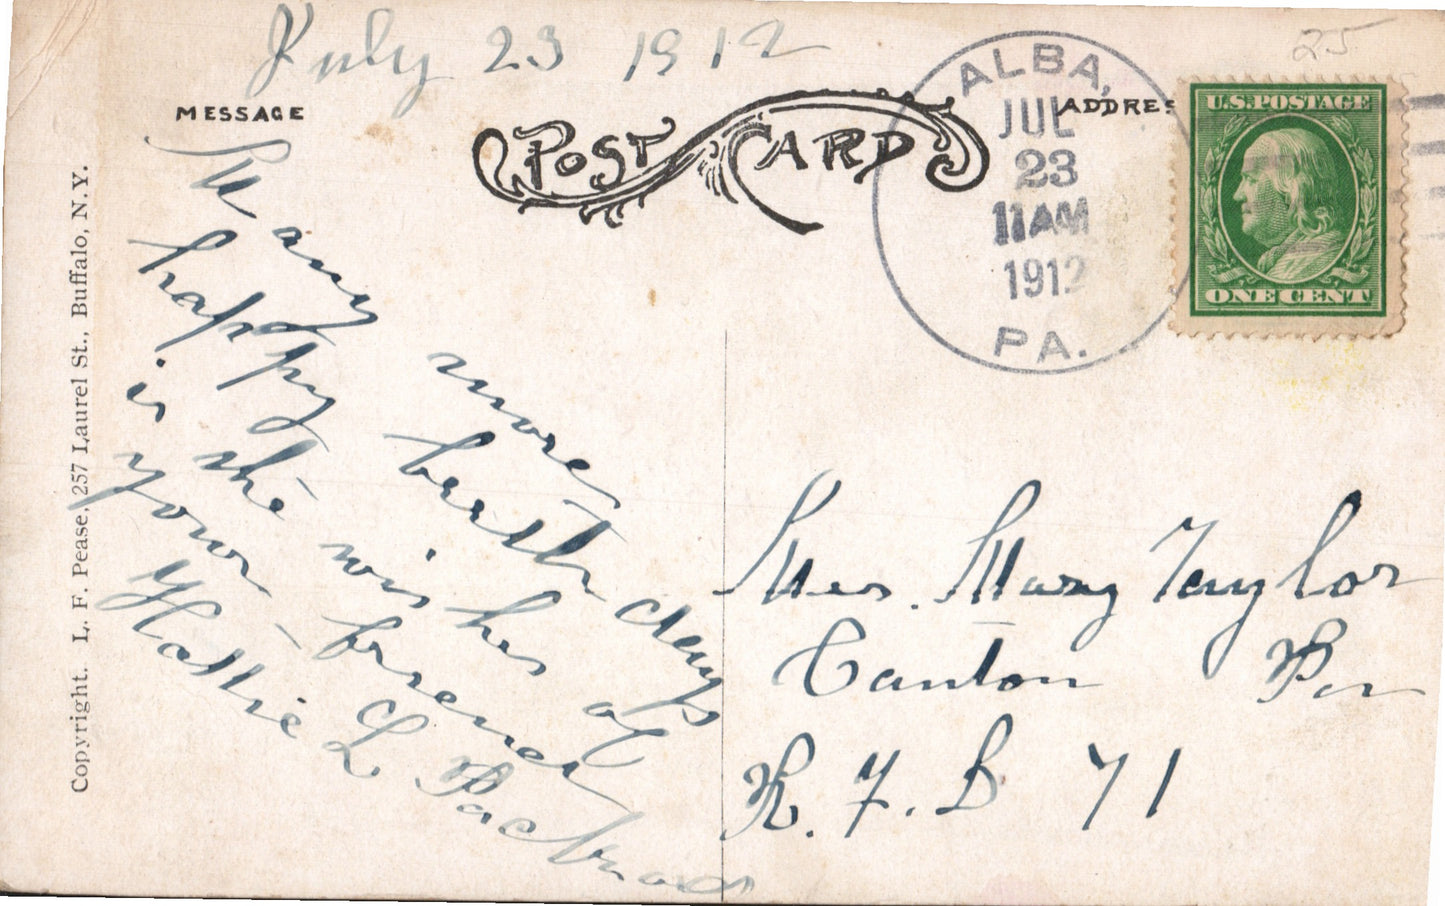 July 23 1912
25
MESSAGE
POST CARD
ADDRES
ALBA,
JUL
23
11AM
1912
PA.
U.S.POSTAGE
ONE CENT
Many more
happy birth days
is the wishes of
your friend
Hattie L
Copyright. L. F. Pease, 257 Laurel St., Buffalo, N.Y.
Mrs. Mary Taylor
Canton Pa
R. F. D 71